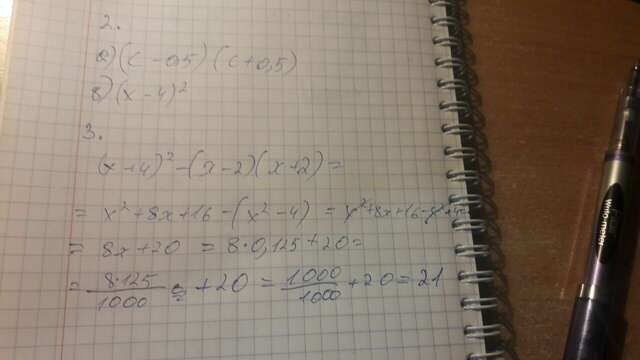 2.
а) (c - 0,5) (c + 0,5)
в) (x - 4)²
3.
(x + 4)² - (x - 2)(x + 2) =
= x² + 8x + 16 - (x² - 4) = x² + 8x + 16 - x² + 4 =
= 8x + 20 = 8·0,125 + 20 =
= 8·125/1000 + 20 = 1000/1000 + 20 = 21